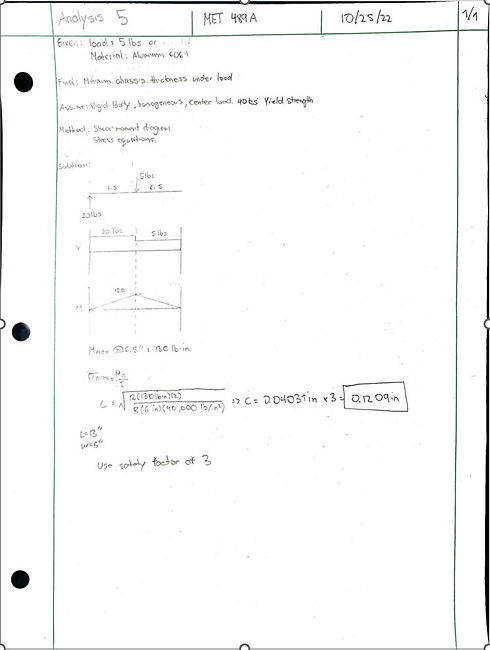 Analysis 5 MET 489A 10/25/22 1/1
Given: load = 5 lbs or
Material: Aluminum 6061
Find: Minimum chassis thickness under load
Assume: Rigid Body, homogeneous, center load. 40 ksi Yield strength
Method: Shear moment diagram
Stress equations.
Solution:
5lbs
6.5 6.5
20lbs
20 lbs 5 lbs
V
130
M
Mmax @ 6.5" = 130 lb·in
σmax = Mc/I
C = √ 12(130lbin)(2) / 8(6in)(40,000 lb/in²) => C = 0.04031in x 3 = 0.1209in
L=13"
W=6"
Use safety factor of 3